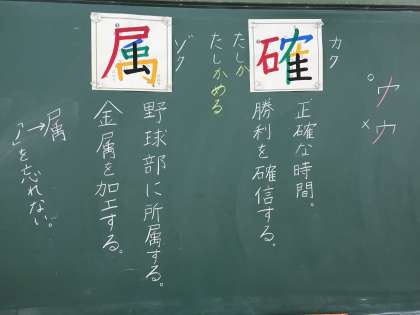 ○ ウ
× ウ
カク
確
たしか
たしかめる
正確な時間。
勝利を確信する。
ゾク
属
野球部に所属する。
金属を加工する。
→属
「ノ」を忘れない。